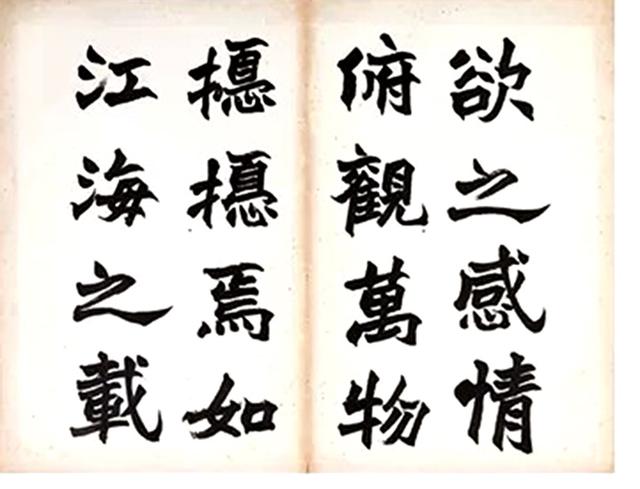 欲之感情
俯觀萬物
擾擾焉如
江海之載